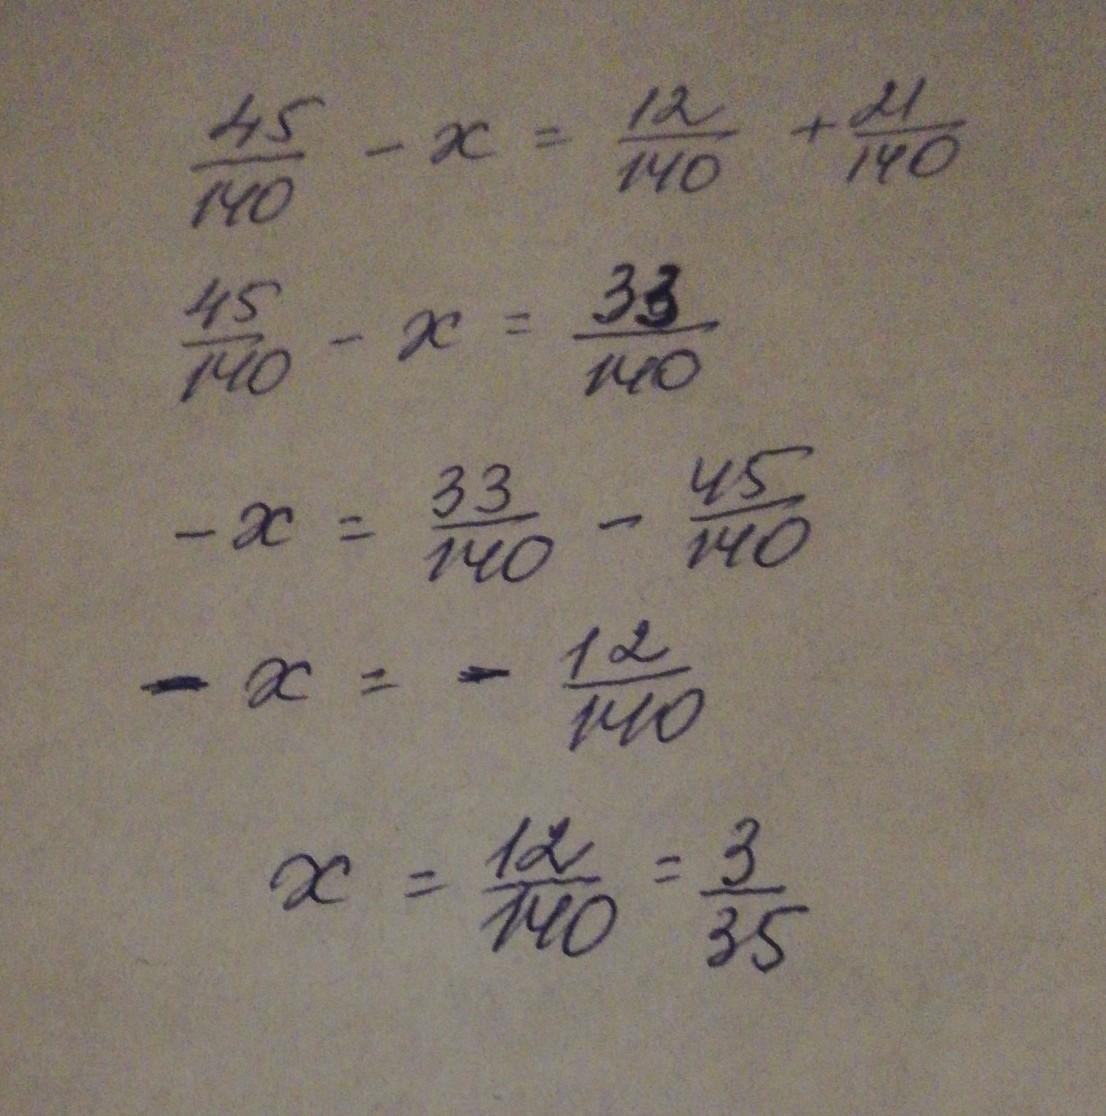 45/140 - x = 12/140 + 21/140
45/140 - x = 33/140
-x = 33/140 - 45/140
- x = - 12/140
x = 12/140 = 3/35